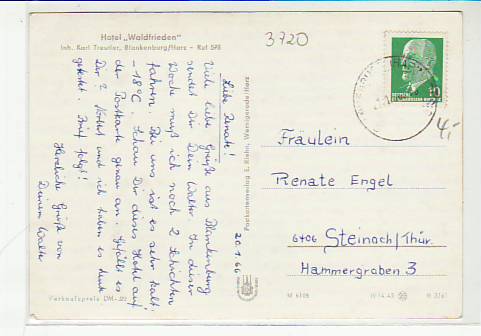 Hotel „Waldfrieden"
Inh. Karl Treutler, Blankenburg/Harz - Ruf 598
3720
Liebe Renate!
Viele liebe Grüße aus Blankenburg
sendet Dir Dein Walter. In dieser
Woche muß ich noch 2 Schichten
fahren. Bei uns ist es sehr kalt:
-18°C. Schau Dir dieses Hotel auf
der Postkarte genau an. Gefällt es
Dir? Norbert und ich haben es dunk
getestet. Brief folgt!
Herzliche Grüße von
Deinem Walter
20.1.66
Verkaufspreis DM -,20
Postkartenverlag E. Riehn, Wernigerode/Harz
10
4,-
Fräulein
Renate Engel
6406 Steinach/Thür.
Hammergraben 3
M 6105
IV-14-45